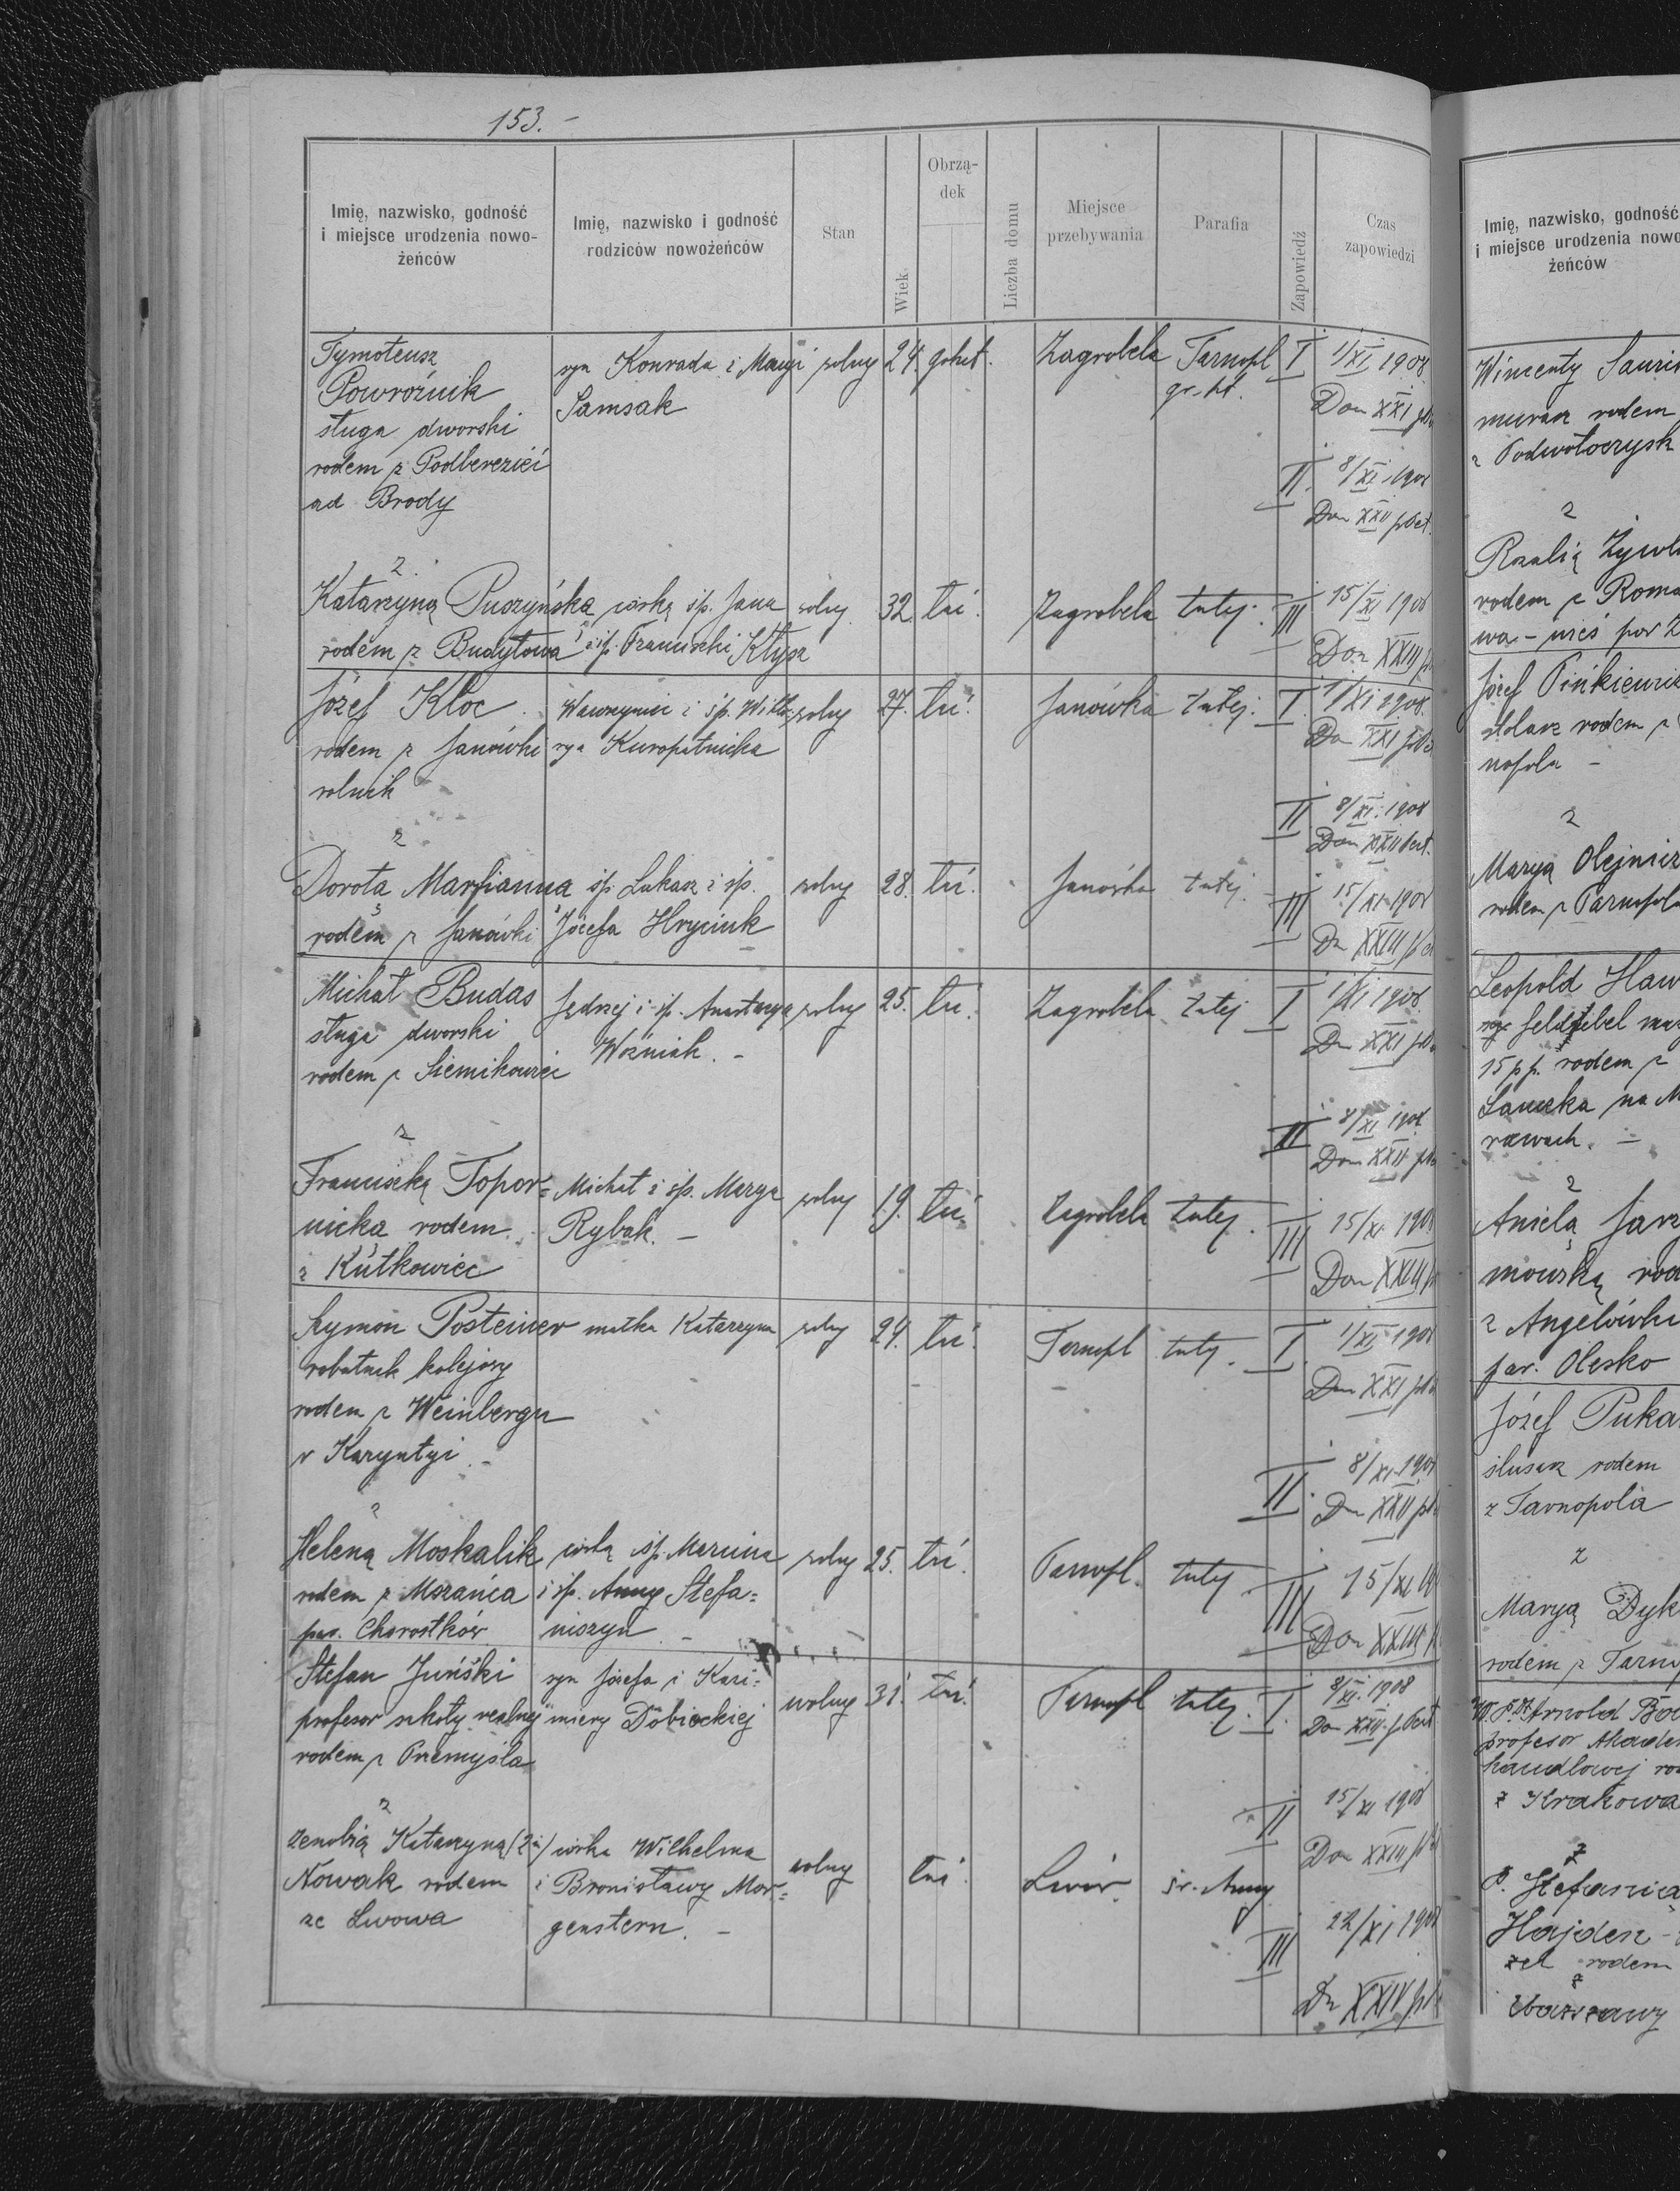 153. -
Imię, nazwisko, godność
i miejsce urodzenia nowo-
żeńców
Imię, nazwisko i godność
rodziców nowożeńców
Stan
Wiek
Obrzą-
dek
Liczba domu
Miejsce
przebywania
Parafia
Zapowiedź
Czas
zapowiedzi
Tymoteusz
Powroźnik
sługa dworski
rodem z
ad Brody
syn Konrada i Maryi
Samsak
wolny 24. Zagrobela Tarnopl
gr. kt.
I 1/XI 1908
Dom XXI
II. 8/XI 1908
Dom XXII p Pet.
z
Katarzyną Puszyńska córką śp. Jana
rodem z Budyłowa i śp. Franciszki Kłysz
wolny 32 łać. Zagrobela tutej. III 15/XI 1908
Dom XXIII
Józef Kloc
rodem z Janówki
rolnik
Wawrzyniec i śp.
Kuropatnicka
wolny 27. łać. Janówka tutej. I. 1/XI 1908.
Do XXI
II 8/XI. 1908
Dom XXII Pent.
z
Dorotą Marfianna śp. Łukasz i śp.
rodem z Janówki Józefa Hryciuk
wolny 28. łać. Janówka tutej. III 15/XI 1908
XXIII
Michał Budas
sługa dworski
rodem z Siemikowiec
Jędrzej i śp. Anastazya
Woźniak. -
wolny 25. łać. Zagrobela tutej I 1/XI 1908.
XXI
II 8/XI 1908
Dom XXII
z
Franciszką Topor=
nicka rodem
z Kutkowiec
Michał i śp. Marya
Rybak. -
wolny 19. łać. Zagrobela tutej. III 15/XI. 1908
Dom XXIII
Szymon Posteiner
robotnik kolejowy
rodem z Weinbergu
w Karyntyi. -
matka Katarzyna
wolny 24. łać. Tarnopl tutej. I. 1/XI 1908
Dom XXI
II. 8/XI 1908
Dom XXII
z
Heleną Moskalik
rodem z Mszańca
par. Chorostków
córką śp. Marcina
i śp. Anny Stefa=
niszyn -
wolny 25. łać. Tarnopl. tutej. III 15/XI
Dom XXIII
Stefan Juński
profesor szkoły realnej
rodem z Przemyśla
syn Józefa i Kazi=
miery Dobieckiej
wolny 31. łać. Tarnopl tutej. I. 8/XI. 1908
Dom XXII. p Pent
II 15/XI 1908
Dom XXIII
z
Zenobią Katarzyną (2 im)
Nowak rodem
ze Lwowa
córka Wilhelma
i Bronisławy Mor=
genstern. -
wolny łać. Lwów. św. Anny
III 22/XI 1908
XXIV
Imię, nazwisko, godność
i miejsce urodzenia nowo
żeńców
Wincenty
murarz rodem
z Podwołoczysk
z
Rozalią
rodem z
Józef
stolarz rodem z
nopola -
z
Maryą Olejnicz
rodem z Tarnopola
Leopold Haw
feldfebel
15 p.p. rodem z
na M
rawach. -
z
Anielą Jarz
mowską rod
z Angelówki
par. Olesko
Józef Puka
ślusarz rodem
z Tarnopola
z
Maryą Dyk
rodem z Tarno
Arnold
profesor Akadem
handlowej ro
z Krakowa
z
P. Stefanią
Hajden -
rodem
z
Warszawy